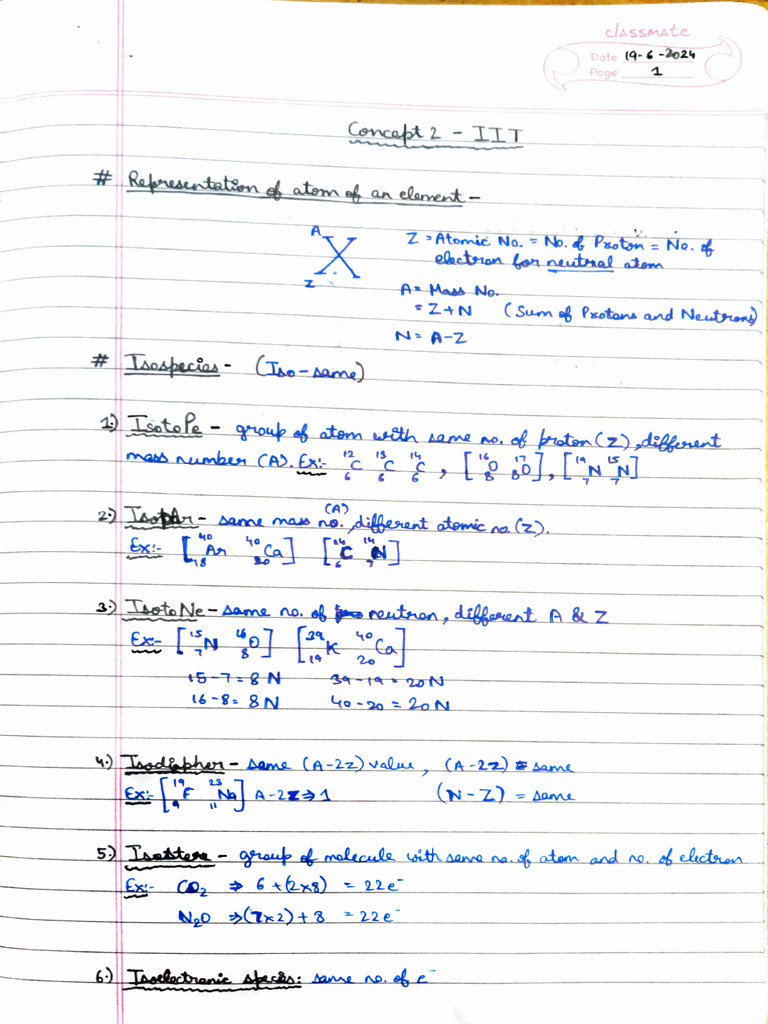 classmate
Date 19-6-2024
Page 1
Concept 2 - IIT
# Representation of atom of an element -
A X Z
Z = Atomic No. = No. of Proton = No. of
electron for neutral atom
A = Mass No.
= Z+N (Sum of Protons and Neutrons)
N = A-Z
# Isospecies - (Iso-same)
1.) IsotoPe - group of atom with same no. of proton (Z), different
mass number (A). Ex:- ¹²₆C ¹³₆C ¹⁴₆C , [¹⁶₈O ¹⁷₈O], [¹⁴₇N ¹⁵₇N]
2.) IsobAr - same mass no. (A), different atomic no. (Z).
Ex:- [⁴⁰₁₈Ar ⁴⁰₂₀Ca] [¹⁴₆C ¹⁴₇N]
3.) IsotoNe - same no. of neutron, different A & Z
Ex- [¹⁵₇N ¹⁶₈O] [³⁹₁₉K ⁴⁰₂₀Ca]
15-7 = 8 N 39-19 = 20N
16-8 = 8N 40-20 = 20N
4.) Isodiapher - same (A-2z) value, (A-2z) = same
Ex:- [¹⁹₉F ²³₁₁Na] A-2z ⇒ 1 (N-Z) = same
5.) Isostere - group of molecule with same no. of atom and no. of electron
Ex:- CO₂ ⇒ 6+(2x8) = 22e⁻
N₂O ⇒ (7x2)+8 = 22e⁻
6.) Isoelectronic species: same no. of e⁻